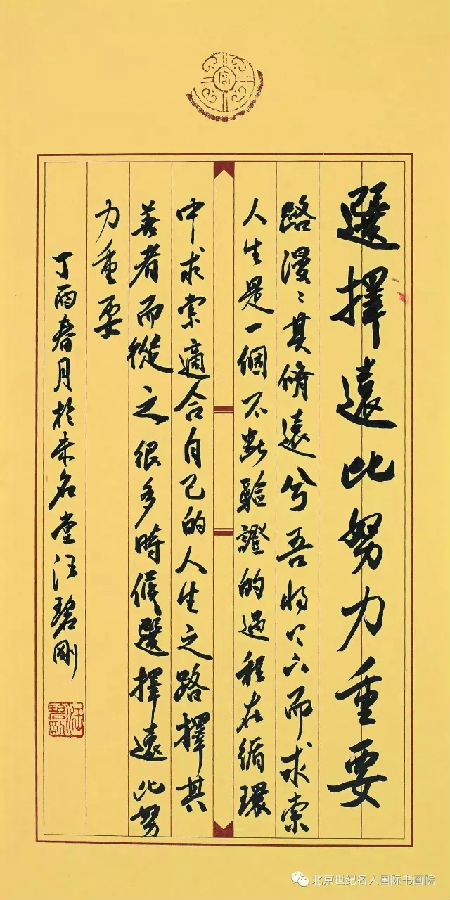 選擇遠比努力重要
路漫〻其脩遠兮吾将上下而求索
人生是一個不斷驗證的過程在循環
中求索適合自己的人生之路擇其
善者而從之很多時候選擇遠比努
力重要
丁酉春月於未名堂汪碧剛
北京世纪名人国际书画院